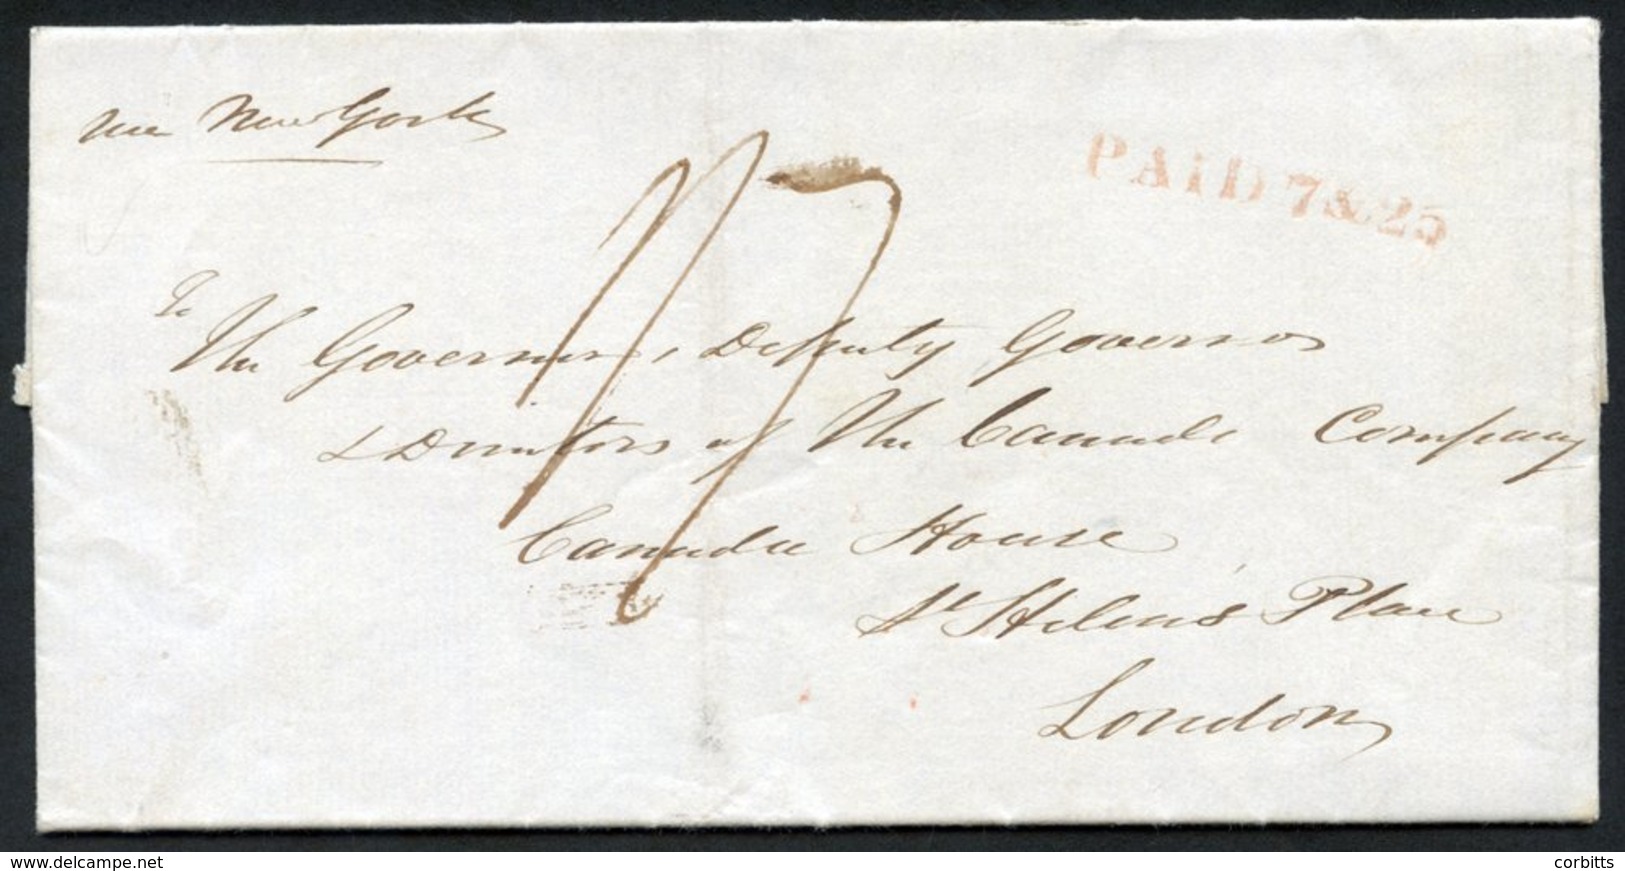 via New York
PAID 7&25
1/7
To
The Governor, Deputy Governor
& Directors of The Canada Company
Canada House
St Helens Place
London
www.delcampe.net
corbitts